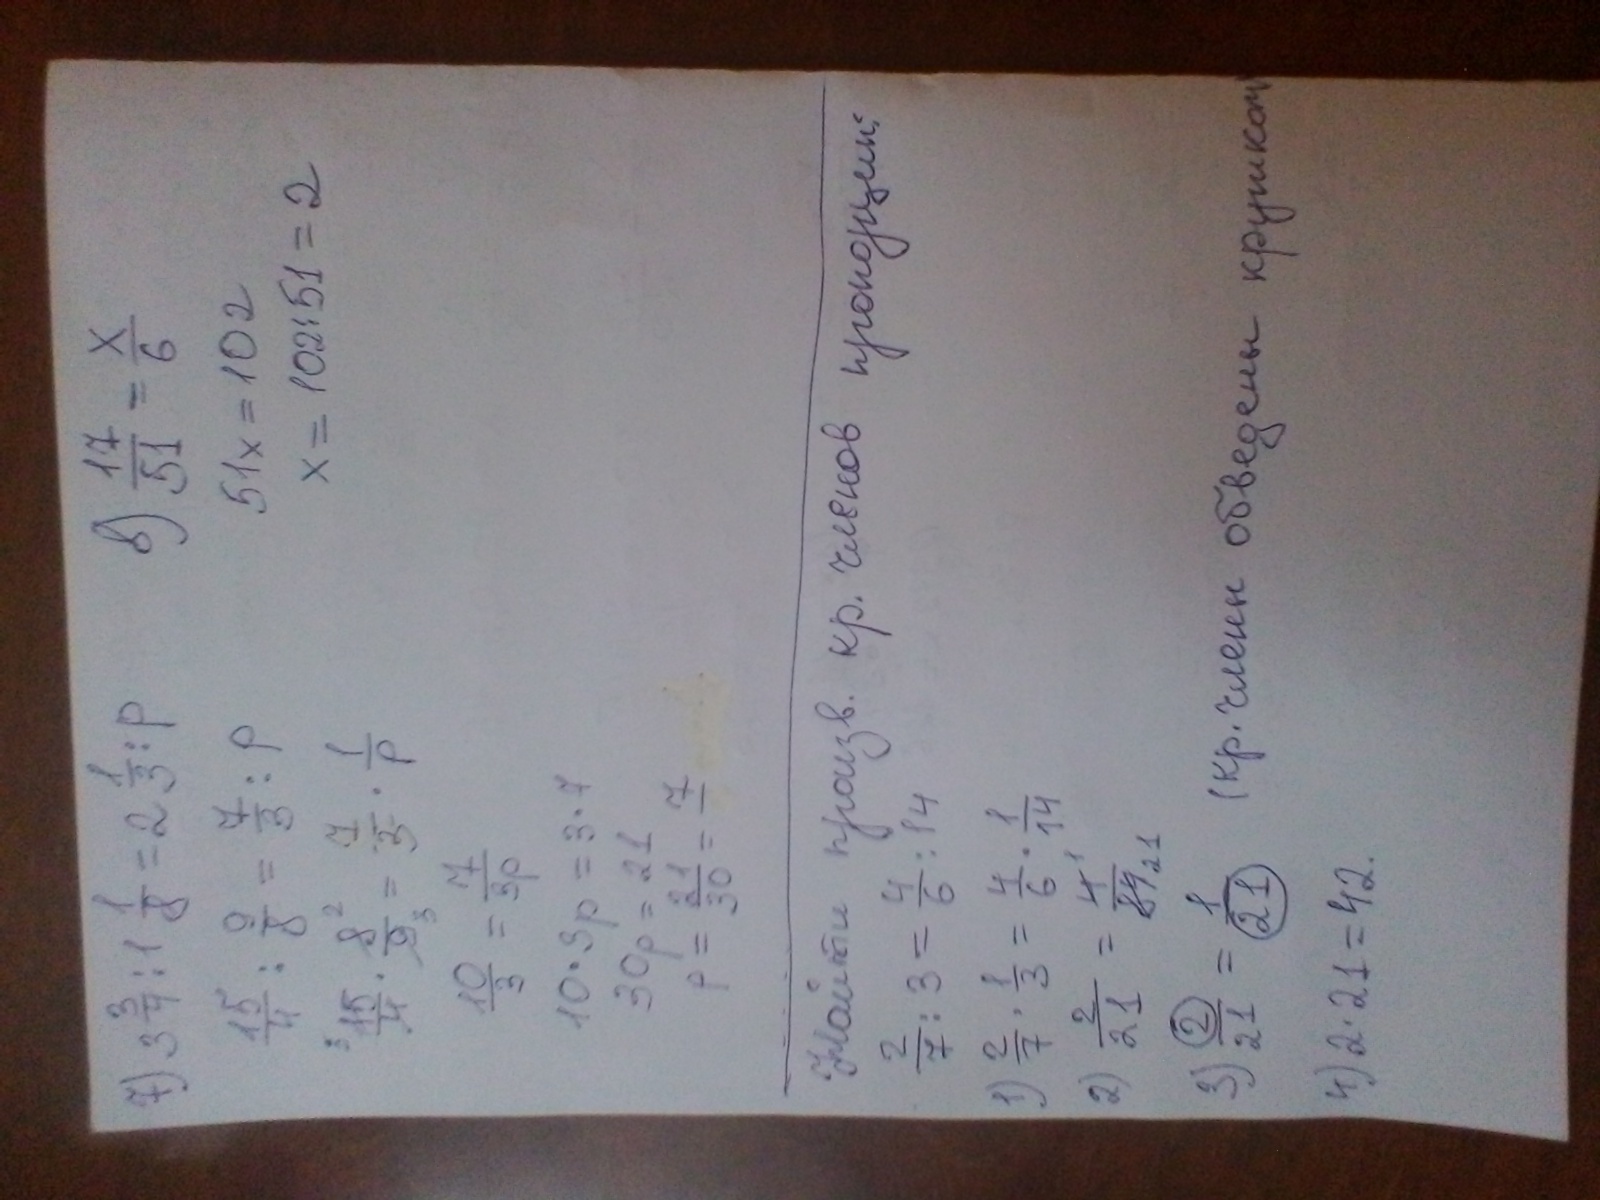 7) 3 3/4 : 1 1/8 = 2 1/3 : p
15/4 : 9/8 = 7/3 : p
15/4 · 8/9 = 7/3 · 1/p
10/3 = 7/3p
10·3p = 3·7
30p = 21
p = 21/30 = 7/
в) 17/51 = x/6
51x = 102
x = 102:51 = 2
Найти произв. кр. членов пропорции:
2/7 : 3 = 4/6 : 14
1) 2/7 · 1/3 = 4/6 · 1/14
2) 2/21 = 4/84 1 21
3) 2/21 = 1/21 (кр. члены обведены кружком
4) 2·21=42.